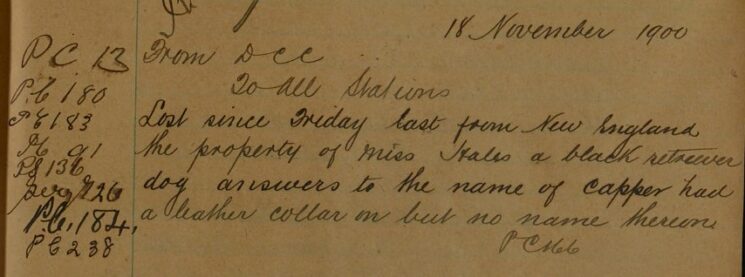 18 November 1900
P.C. 13 From DCC
To All Stations
P.C 180
P.C 183 Lost since Friday last from New England
PC 91 the property of Miss Hales a black retriever
PS 136
Serg 126 dog answers to the name of capper had
P.C. 184, a leather collar on but no name thereon
P C 238